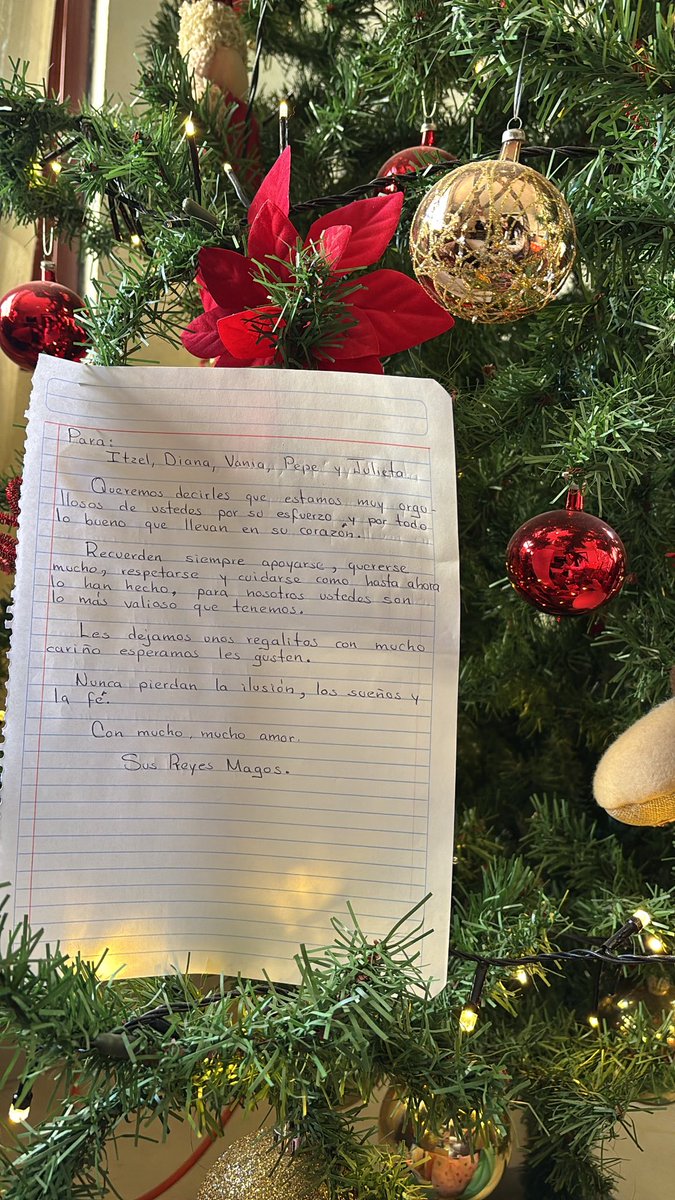 Para:
Itzel, Diana, Vania, Pepe y Julieta
Queremos decirles que estamos muy orgu-
llosos de ustedes por su esfuerzo y por todo
lo bueno que llevan en su corazón.
Recuerden siempre apoyarse, quererse
mucho, respetarse y cuidarse como hasta ahora
lo han hecho, para nosotros ustedes son
lo más valioso que tenemos.
Les dejamos unos regalitos con mucho
cariño esperamos les gusten.
Nunca pierdan la ilusión, los sueños y
la fé.
Con mucho, mucho amor.
Sus Reyes Magos.